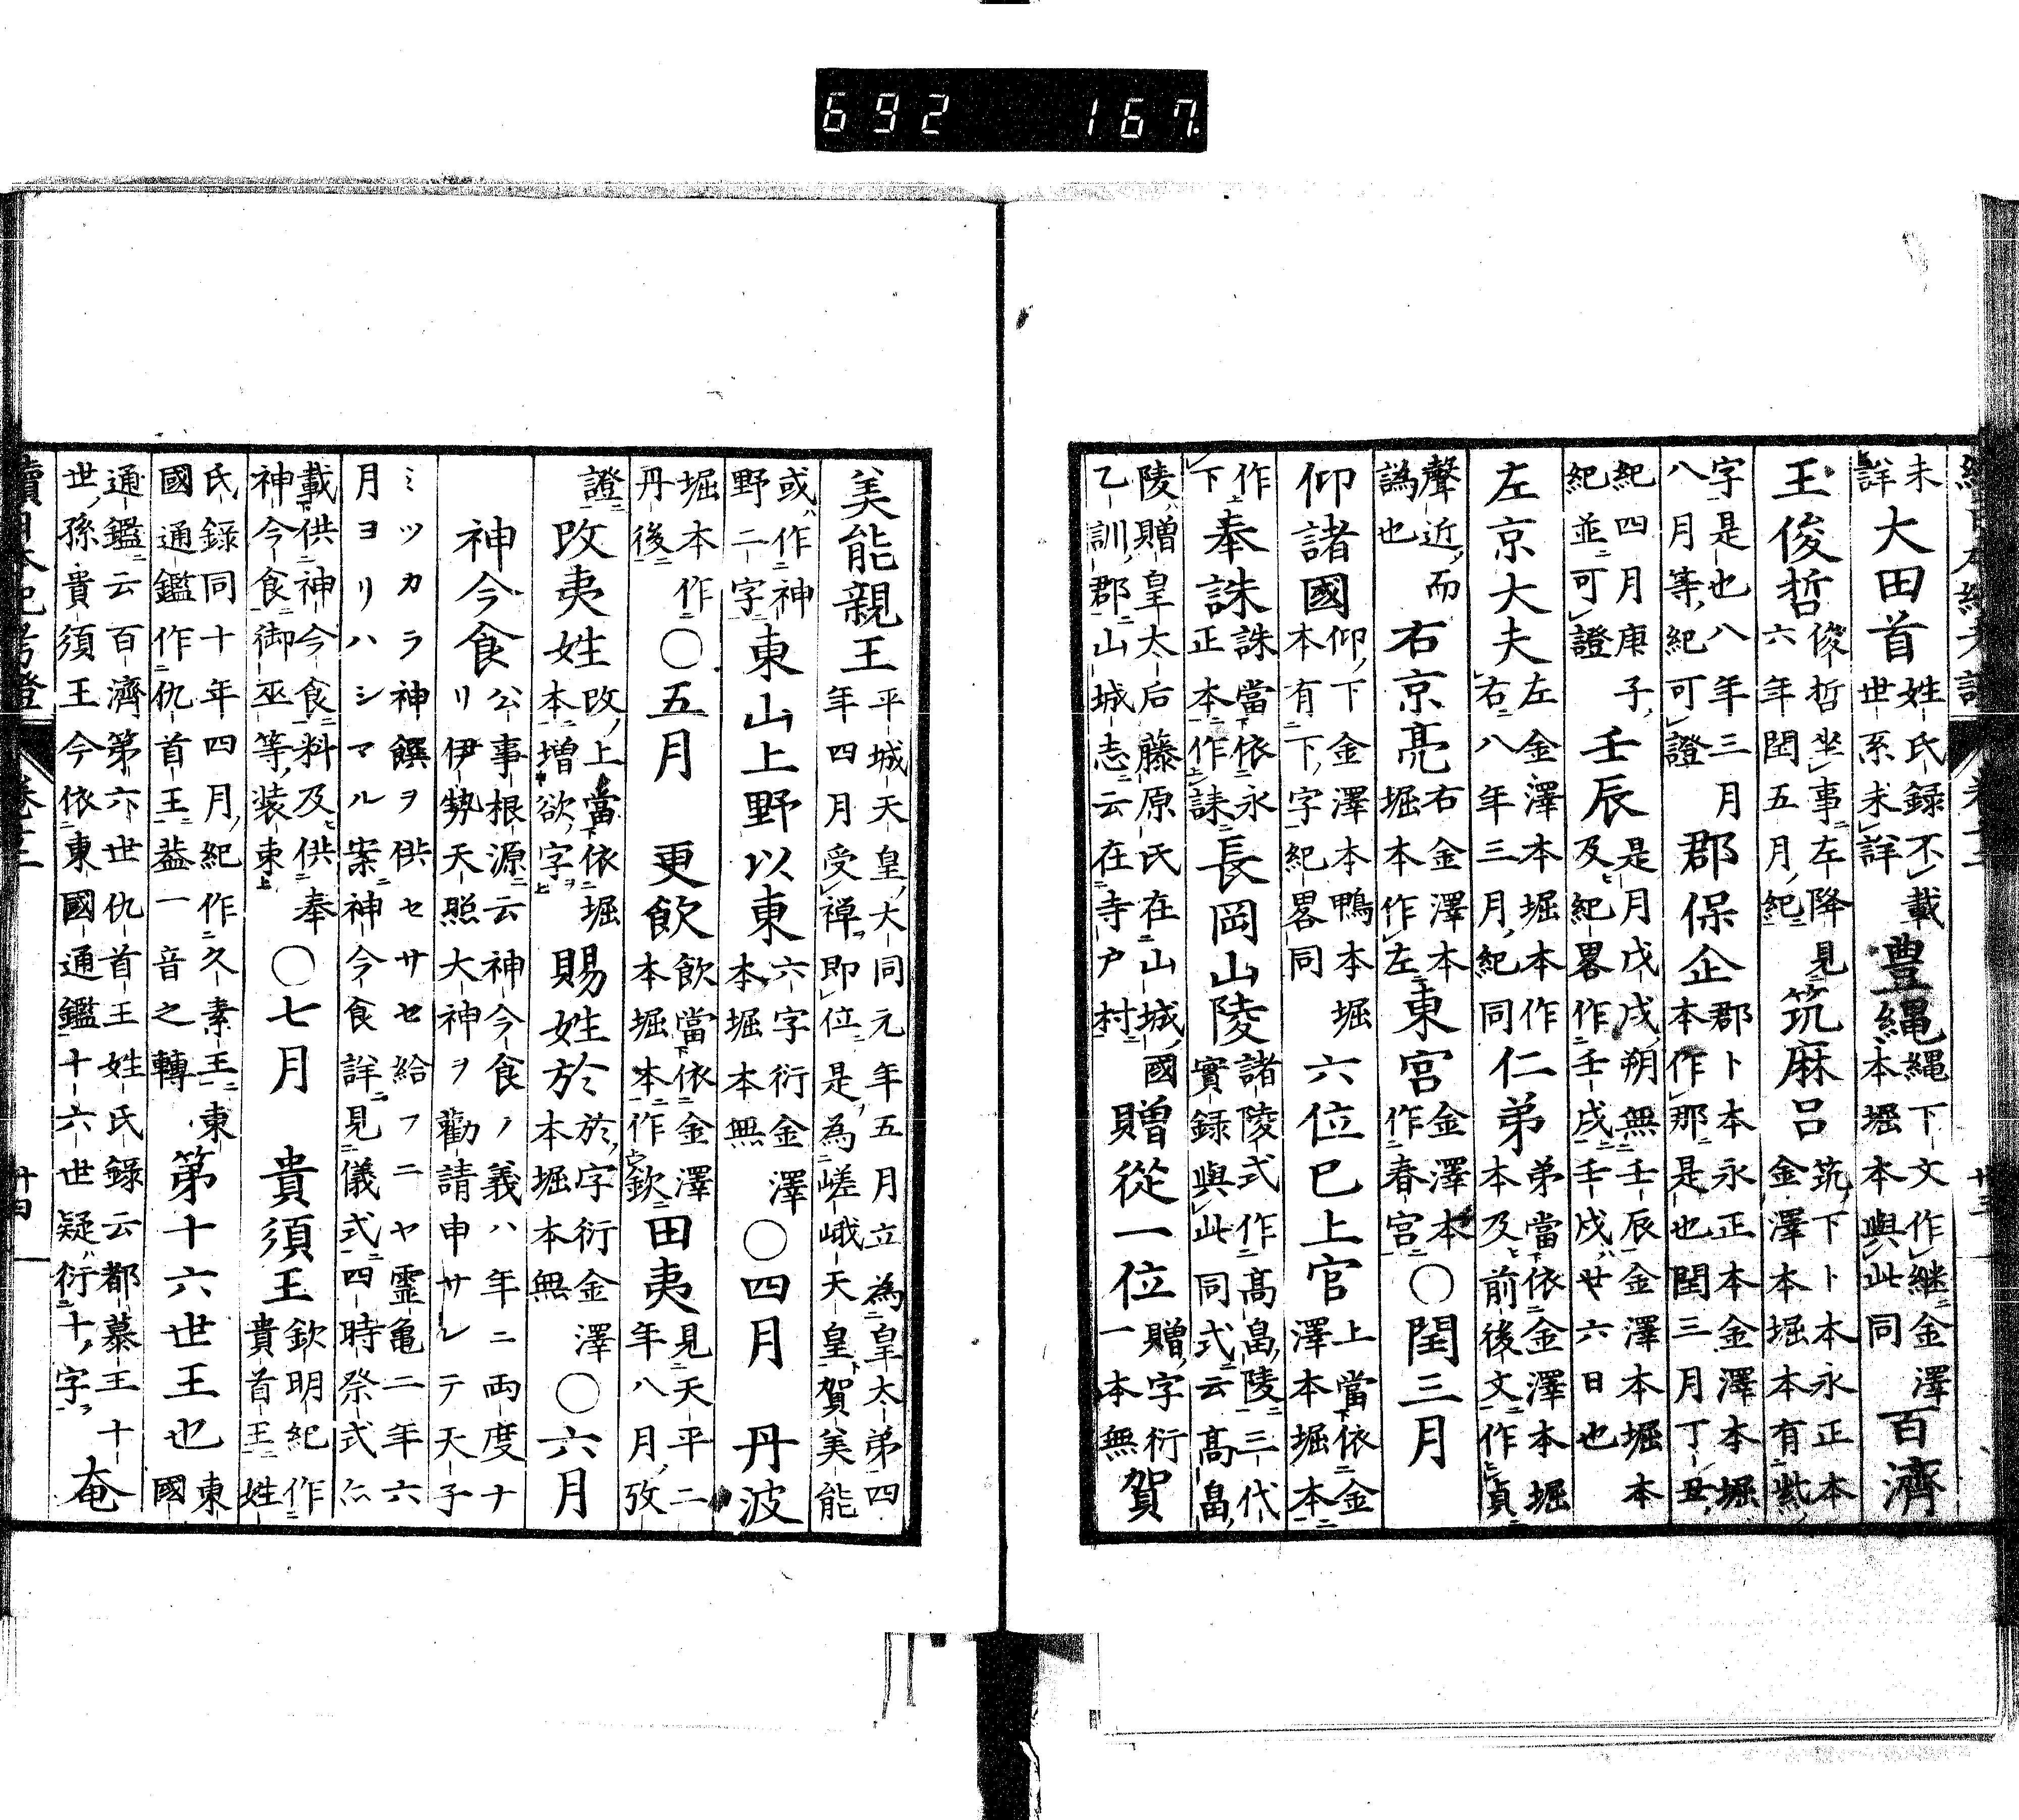 692 167.
未詳 大田首 姓氏録不載世系未詳 豊縄 縄下文作継金澤本堀本與此同 百濟
王俊哲 俊哲坐事左降見六年閏五月紀 筑麻呂 筑下卜本永正本金澤本堀本有紫
字是也八年三月八月等紀可證 郡保企 郡卜本永正本金澤本堀本作那是也閏三月丁丑
紀四月庚子紀並可證 壬辰 是月戊戌朔無壬辰金澤本堀本及紀畧作壬戌壬戌ハ廿六日也
左京大夫 左金澤本堀本作右八年三月紀同 仁弟 弟當依金澤本堀本及前後文作貞
聲近而譌也 右京亮 右金澤本堀本作左 東宮 金澤本作春宮 ○閏三月
仰諸國 仰下金澤本鴨本堀本有下字紀畧同 六位巳上官 上當依金澤本堀本
作下 奉誄 誄當依永正本作誄 長岡山陵 諸陵式作髙畠陵三代實録與此同式云髙畠
陵ハ贈皇太后藤原氏在山城國乙訓郡山城志云在寺戸村 贈從一位 贈字衍一本無 賀
美能親王 平城天皇大同元年五月立為皇太弟四年四月受禅即位是為嵯峨天皇賀美能
或ハ作神野二字 東山上野以東 六字衍金澤本堀本無 ○四月 丹波
堀本作丹後 ○五月 更飲 飲當依金澤本堀本作欽 田夷 見天平二年八月攷
證 改夷姓 改上當依堀本増欲字 賜姓於 於字衍金澤本堀本無 ○六月
神今食 公事根源云神今食ノ義ハ年ニ両度ナリ伊勢天照大神ヲ勸請申サレテ天子
ミツカラ神饌ヲ供セサセ給フニヤ霊亀二年六月ヨリハシマル案神今食詳見儀式四時祭式
載供神今食料及供奉神今食御巫等装束 ○七月 貴須王 欽明紀作貴首王姓
氏録同十年四月紀作久素王東國通鑑作仇首王葢一音之轉 第十六世王也 東國
通鑑云百濟第六世仇首王姓氏録云都慕王十世孫貴須王今依東國通鑑十六世疑ハ衍十字 奄